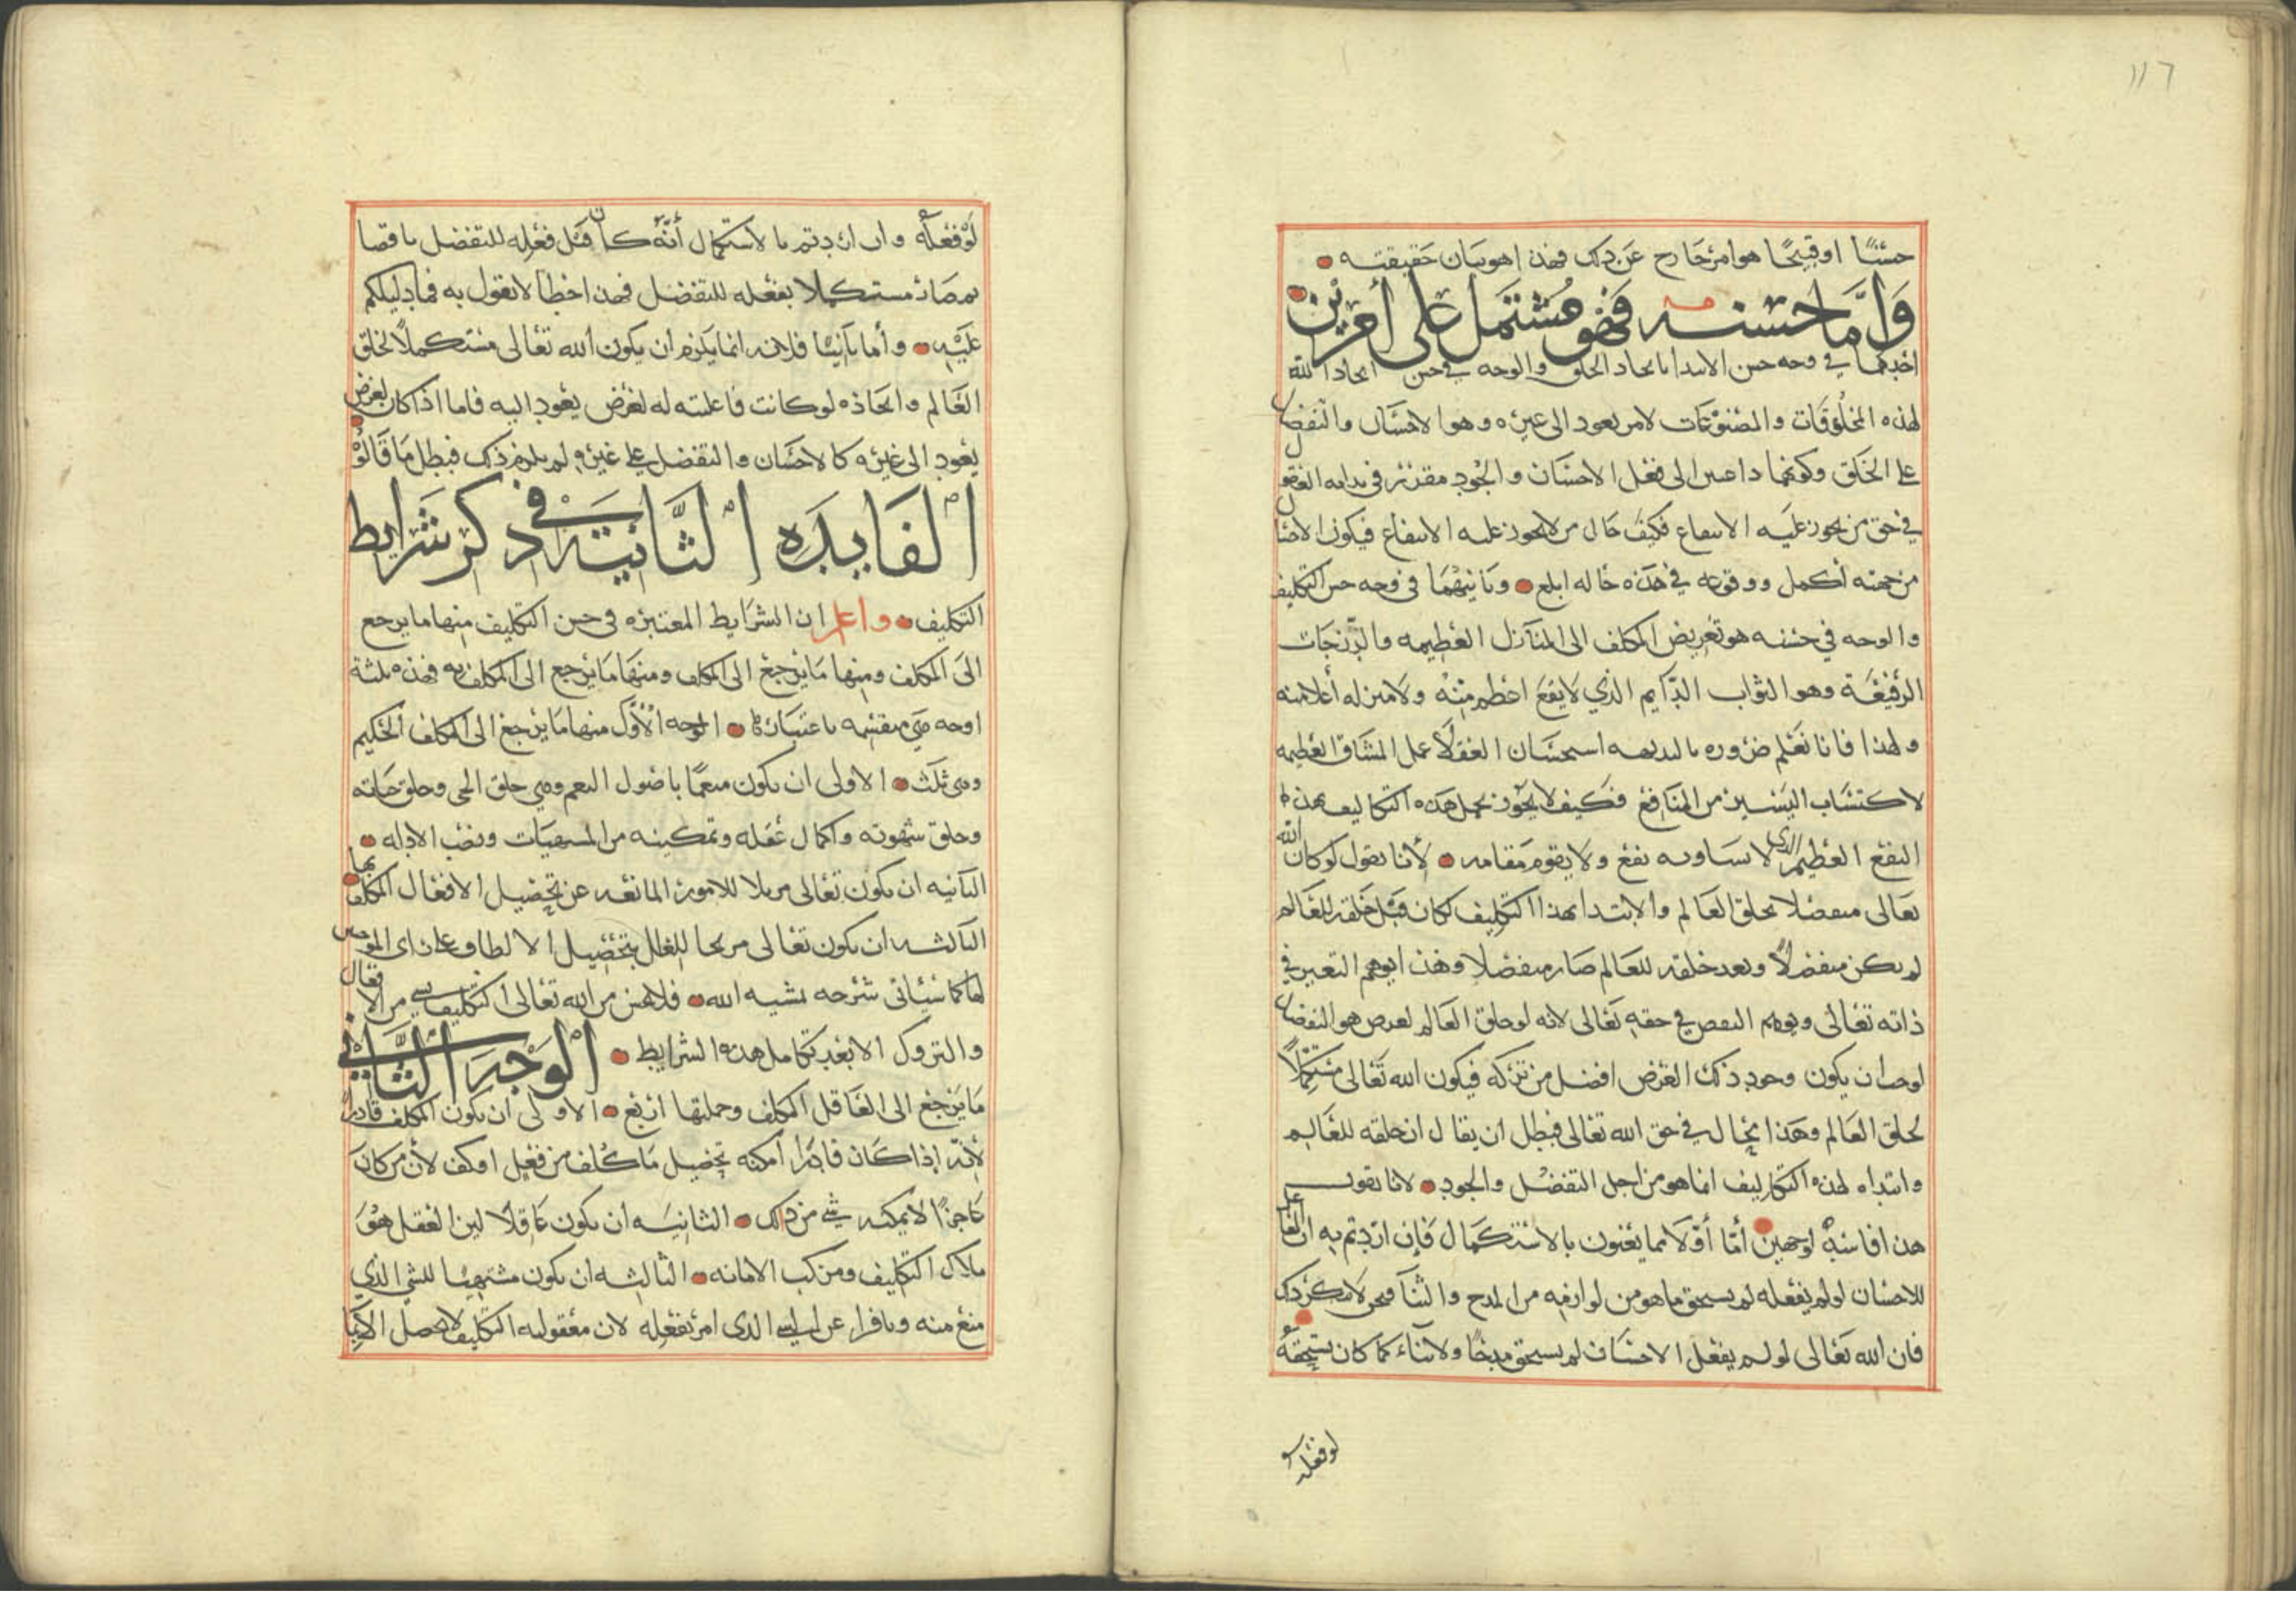 ١١٦
حسنًا او قبيحًا هو امر خارج عن ذلك فهذا هو بيان حقيقته
وَأمَّا حسنه فهو مشتمل على أمرين
احدهما في وجه حسن الابتدا بايجاد الخلق والوجه في حسن ايجاد الله
لهذه المخلوقات والمصنوعات لامر يعود الى غيره وهو الاحسان والتفضل
على الخلق وكونهما داعيين الى فعل الاحسان والجود مقدر في بدايه العقول
في حق من يجوز عليه الانتفاع فكيف حال من لا يجوز عليه الانتفاع فيكون الاحسان
من جهته أكمل ووقوعه في هذه حاله ابلغ وثانيهما في وجه حسن التكليف
والوجه في حسنه هو تعريض المكلف الى المنازل العظيمه والدرجات
الرفيعة وهو الثواب الدايم الذي لا يقع اعظم منه ولا منزله أعلا منه
ولهذا فانا نعلم ضروره بالبديهه استحسان العقلا عمل المشاق العظيمه
لاكتساب اليسير من المنافع فكيف لا يجوز تحمل هذه التكاليف بهذا
النفع العظيم الذي لا يساويه نفع ولا يقوم مقامه لأنا نقول لو كان الله
تعالى متفضلا بخلق العالم والابتدا بهذا التكليف لكان قبل خلقه للعالم
لم يكن متفضلًا وبعد خلقه للعالم صار متفضلا وهذا يوهم التغير في
ذاته تعالى ويوهم النقص في حقه تعالى لانه لو خلق العالم لغرض هو التفضل
لوجب ان يكون وجود ذلك الغرض افضل من تركه فيكون الله تعالى مستكملًا
بخلق العالم وهذا محال في حق الله تعالى فبطل ان يقال ان خلقه للعالم
وابتداه لهذه التكاليف انما هو من اجل التفضل والجود لانا نقول
هذا فاسد لوجهين أمّا أوّلا فما يعنون بالاستكمال فإن اردتم به ان الفاعل
للاحسان لو لم يفعله لم يستحق ما هو من لوازمه من المدح والثنا فنحن لا ننكر ذلك
فان الله تعالى لو لم يفعل الاحسان لم يستحق مدحًا ولا ثناء كما كان يستحقه
لو فعله
لو فعله وان اردتم بالاستكمال أنّه كان قبل فعله للتفضل ناقصا
ثم صار مستكملا بفعله للتفضل فهذا خطأ لا نقول به فما دليلكم
عليه وأما ثانيًا فلانه انما يلزم ان يكون الله تعالى مستكملًا بخلق
العالم وايجاده لو كانت فاعليته له لغرض يعود اليه فاما اذا كان لغرض
يعود الى غيره كالاحسان والتفضل على غيره لم يلزم ذلك فبطل ما قالوه
الفايدة الثانية في ذكر شرايط
التكليف واعلم ان الشرايط المعتبره في حسن التكليف منها ما يرجع
الى المكلف ومنها ما يرجع الى المكلف ومنها ما يرجع الى المكلف به فهذه ثلثة
اوجه هي منقسمه باعتبارها الوجه الأوّل منها ما يرجع الى المكلف الحكيم
وهي ثلث الاولى ان يكون منعمًا باصول النعم وهي خلق الحي وخلق حياته
وخلق شهوته واكمال عقله وتمكينه من المشتهيات ونصب الادله
الثانيه ان يكون تعالى مزيلا للامور المانعه عن تحصيل الافعال المكلف بها
الثالثه ان يكون تعالى مزيحا للعلل بتحصيل الالطاف على راي الموجبين
لها كما سيأتي شرحه بمشيه الله فلا يحسن من الله تعالى التكليف بشي من الافعال
والتروك الا بعد تكامل هذه الشرايط الوجه الثاني
ما يرجع الى العاقل المكلف وجملتها اربع الاولى ان يكون المكلف قادرًا
لأنه إذا كان قادرًا أمكنه تحصيل ما كلف من فعل او كف لأن من كان
عاجزًا لا يمكنه شي من ذلك الثانيه ان يكون عاقلًا لان العقل هو
ملاك التكليف ومركب الامانه الثالثه ان يكون مشتهيًا للشي الذي
منع منه ونافرا عن الشي الذي امر بفعله لان معقوليه التكليف لا يحصل الا